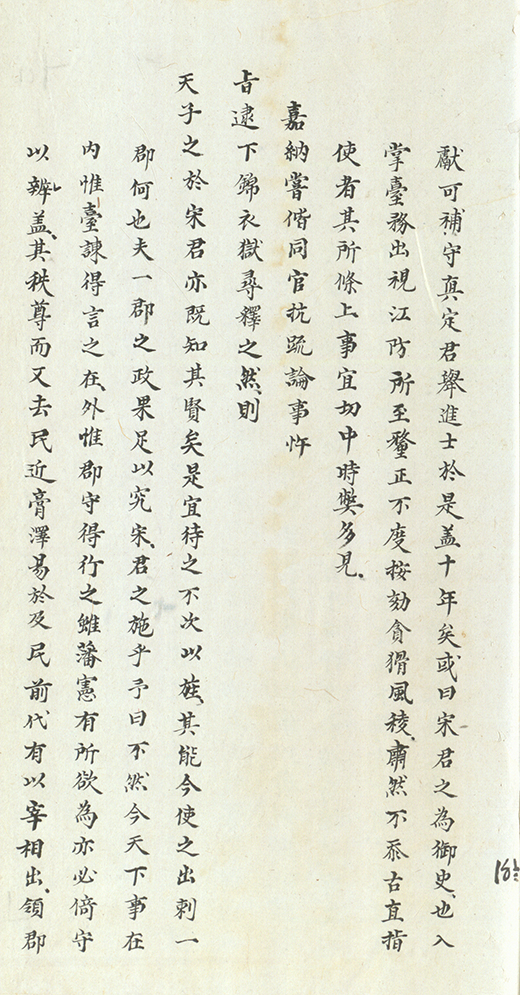 獻可補守真定君舉進士於是盖十年矣或曰宋君之為御史也入
掌臺務出視江防所至釐正不度按劾貪猾風稜肅然不忝古直指
使者其所條上事宜切中時獘多見
嘉納嘗偕同官抗疏論事忤
旨逮下錦衣獄尋釋之然則
天子之於宋君亦既知其賢矣是宜待之不次以旌其能今使之出刺一
郡何也夫一郡之政果足以究宋君之施乎予曰不然今天下事在
内惟臺諫得言之在外惟郡守得行之雖藩憲有所欲為亦必倚守
以辨盖其秩尊而又去民近膏澤易於及民前代有以宰相出領郡